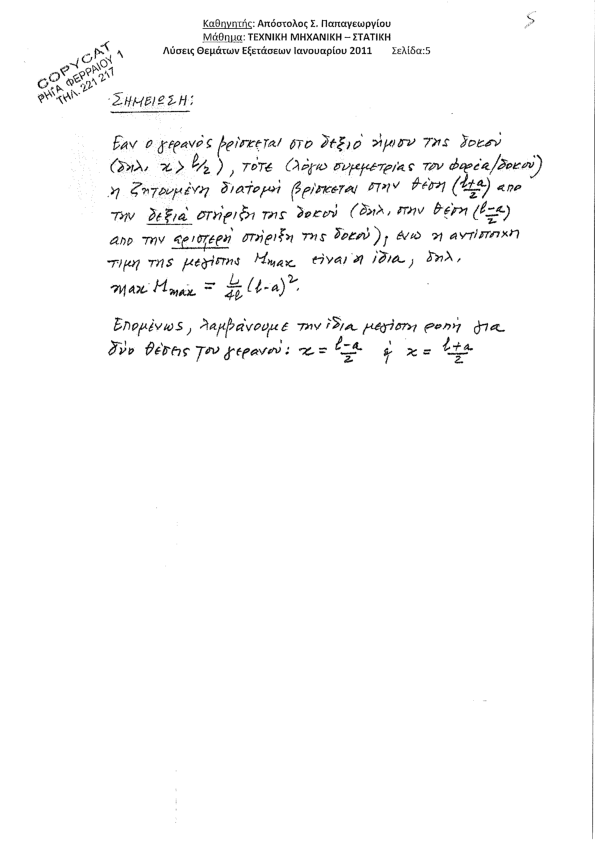 Καθηγητής: Απόστολος Σ. Παπαγεωργίου
5
Μάθημα: ΤΕΧΝΙΚΗ ΜΗΧΑΝΙΚΗ – ΣΤΑΤΙΚΗ
Λύσεις Θεμάτων Εξετάσεων Ιανουαρίου 2011 Σελίδα:5
COPYCAT
ΡΗΓΑ ΦΕΡΡΑΙΟΥ 1
ΤΗΛ. 221 217
ΣΗΜΕΙΩΣΗ:
Εαν ο γερανός βρίσκεται στο δεξιό ήμισυ της δοκού
(δηλ. x > l/2), τότε (λόγω συμμετρίας του φορέα/δοκού)
η ζητουμένη διατομή βρίσκεται στην θέση (l+a/2) απο
την δεξιά στήριξη της δοκού (δηλ. στην θέση (l-a/2)
απο την αριστερή στήριξη της δοκού), ενώ η αντίστοιχη
τιμη της μεγίστης Mmax είναι η ίδια, δηλ.
max Mmax = L/4l (l-a)².
Επομένως, λαμβάνουμε την ίδια μεγίστη ροπή για
δύο θέσεις του γερανού: x = l-a/2 ή x = l+a/2